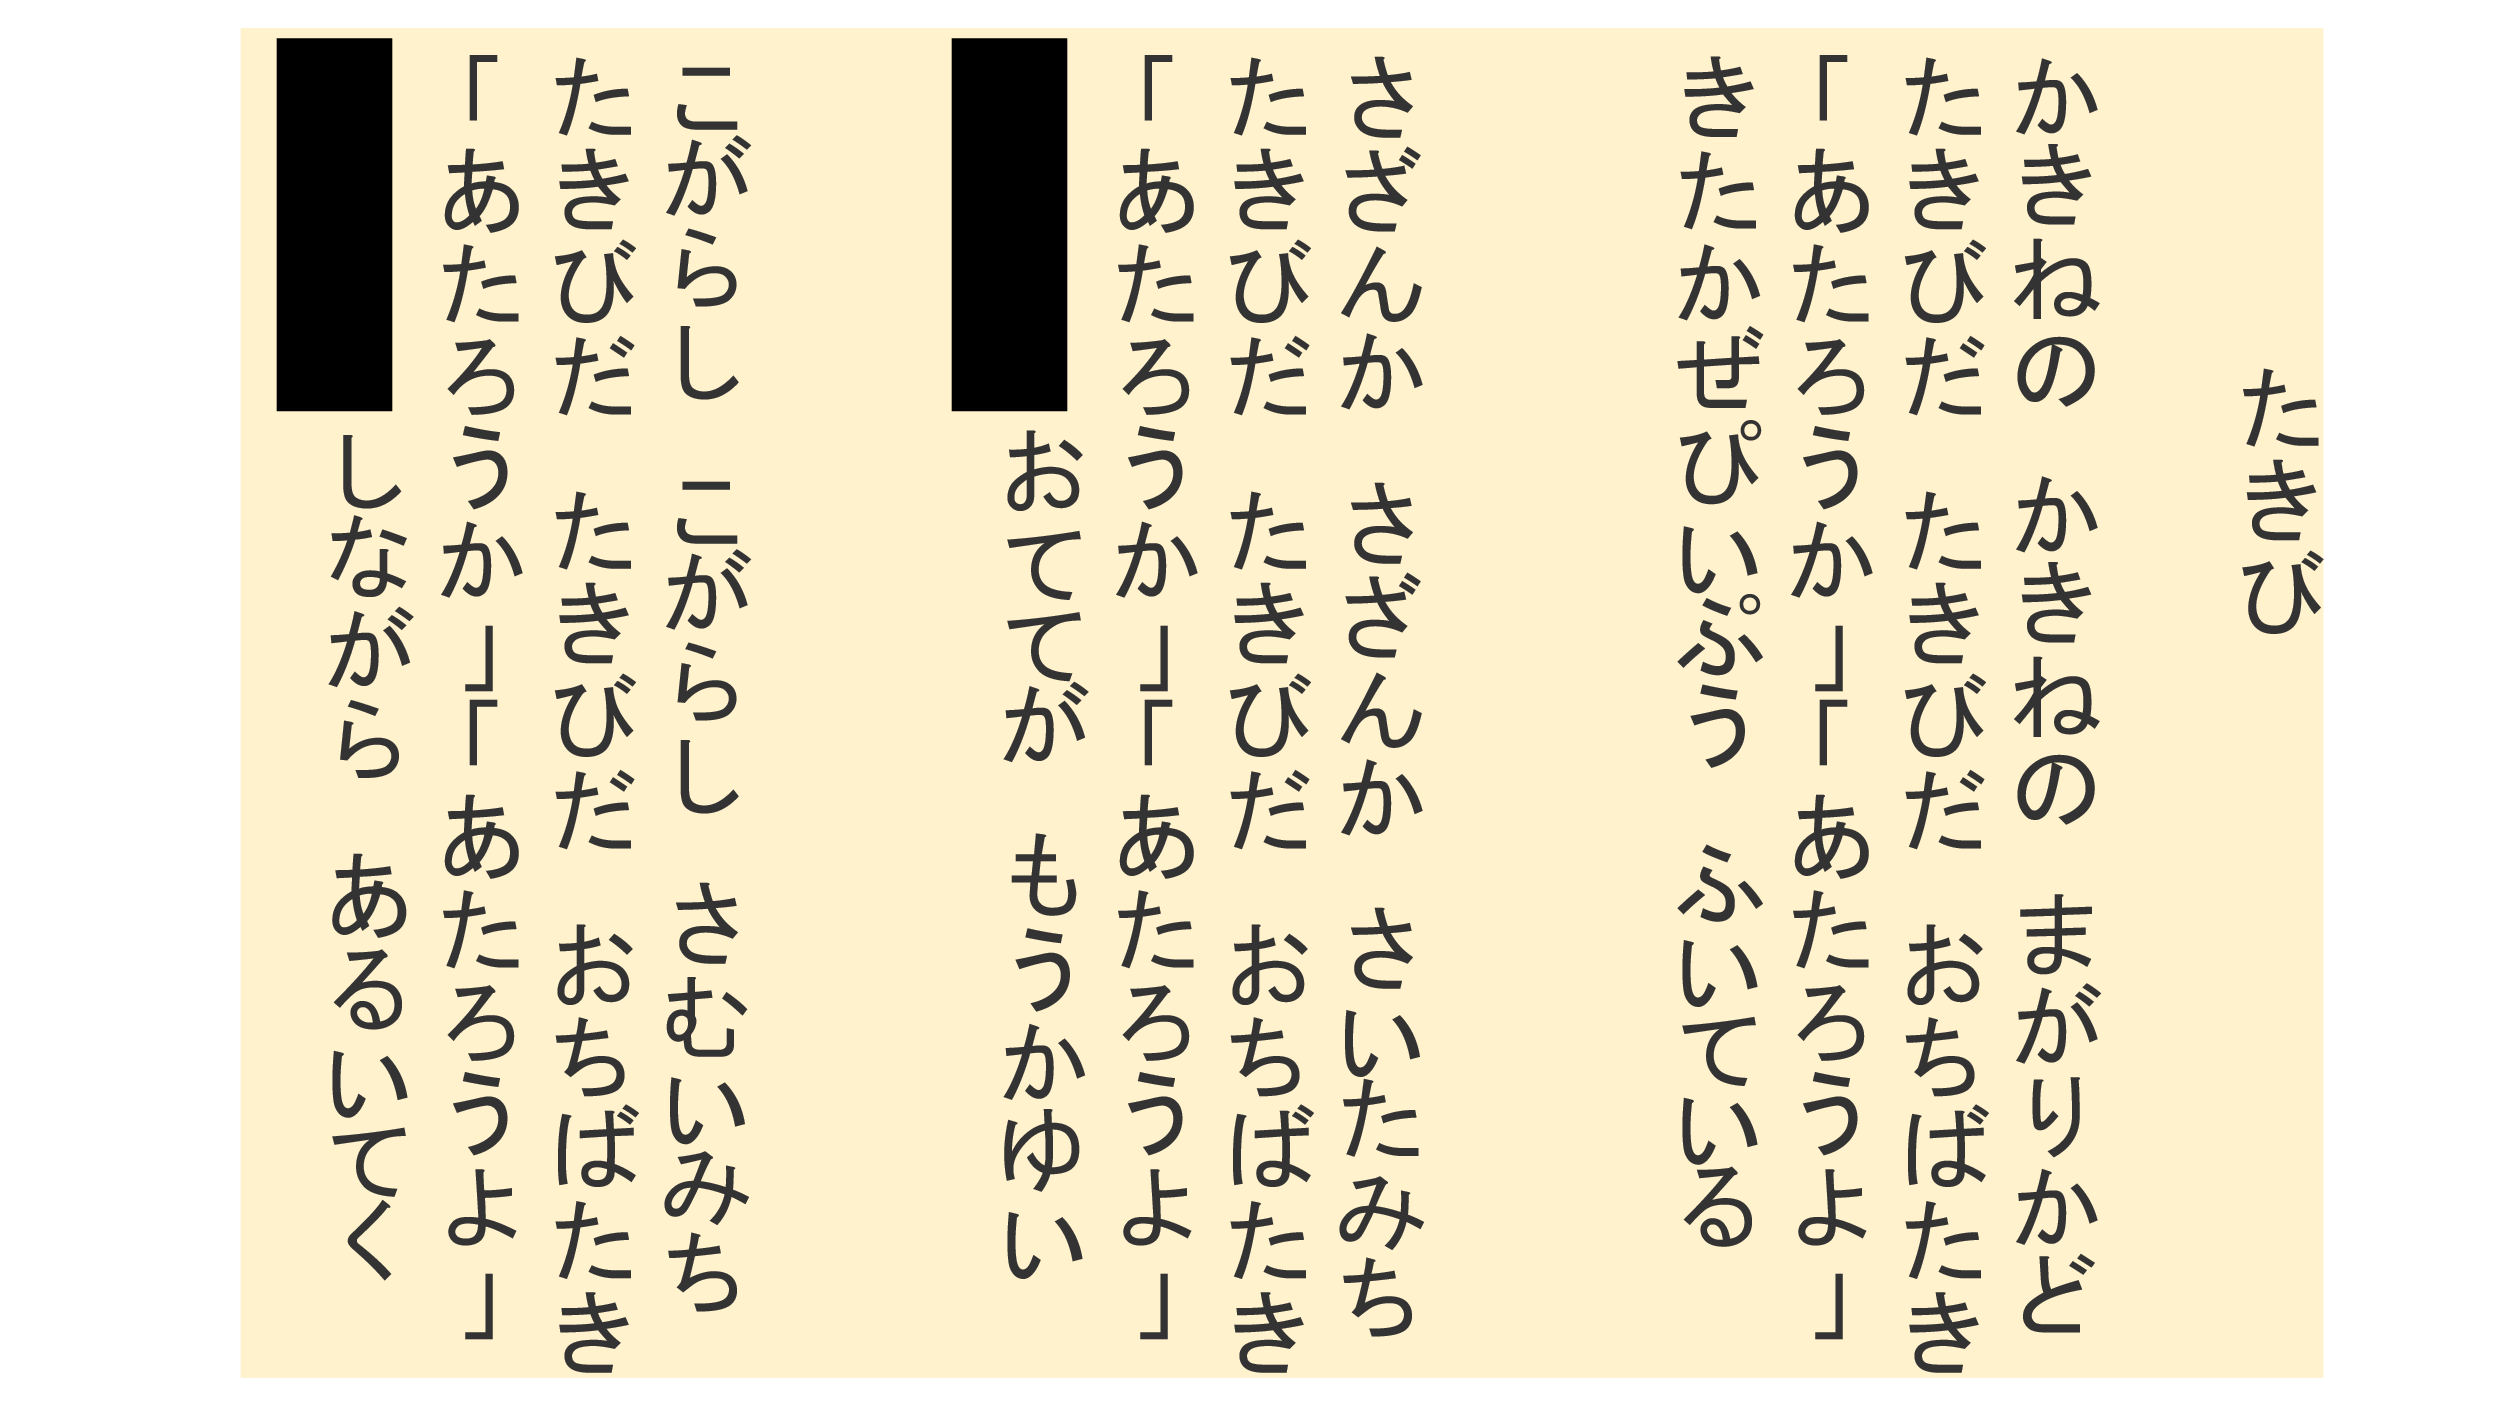 たきび
かきねの　かきねの　まがりかど
たきびだ　たきびだ　おちばたき
「あたろうか」「あたろうよ」
きたかぜぴいぷう　ふいている
さざんか　さざんか　さいたみち
たきびだ　たきびだ　おちばたき
「あたろうか」「あたろうよ」
おててが　もうかゆい
こがらし　こがらし　さむいみち
たきびだ　たきびだ　おちばたき
「あたろうか」「あたろうよ」
しながら　あるいてく